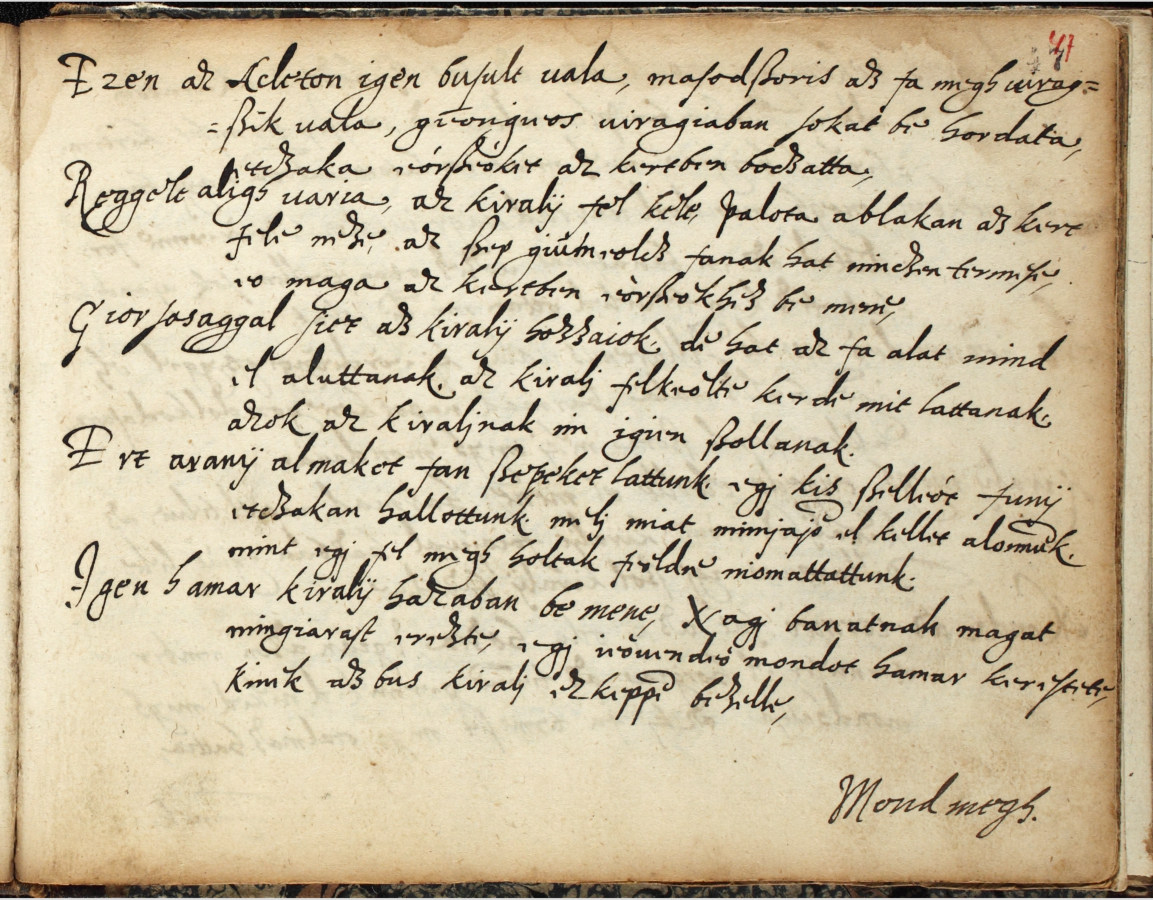 47
Ezen az Acleton igen buſult uala, maſodßoris az fa megh uirag=
=ßik uala, gÿongiuos uiragiaban ſokat be hordata,
etczaka eórßeóket az kertben boczatta,
Reggelt aligh uaria, az kiralÿ fel kéle, Palota ablakan az kert
fele neze, az ßep giümeolcz fanak hat ninczen termeſe,
eo maga az kertben eórßeókhez be mene,
Giorſasaggal ſiet az kiralÿ hozzaiok, de hat az fa alat mind
el aluttanak, az kiralj felkeólte kerde mit lattanak,
azok az kiraljnak im igien ßollanak.
Ezt aranÿ almaket fan ßepeket lattunk, egj kis ßelleót funÿ
etczakan hallottunk, melj miat mimjajo el kellet alomuk.
mint egj fel megh holtak feóldre niomattattunk.
Igen hamar kiralÿ hazaban be mene, Nagj banatnak magat
mingiaraſt erezte, egj ieóuendeó mondot hamar kereſtete,
kinek az bus kiralj ez keppe bezelle,
Mond megh.